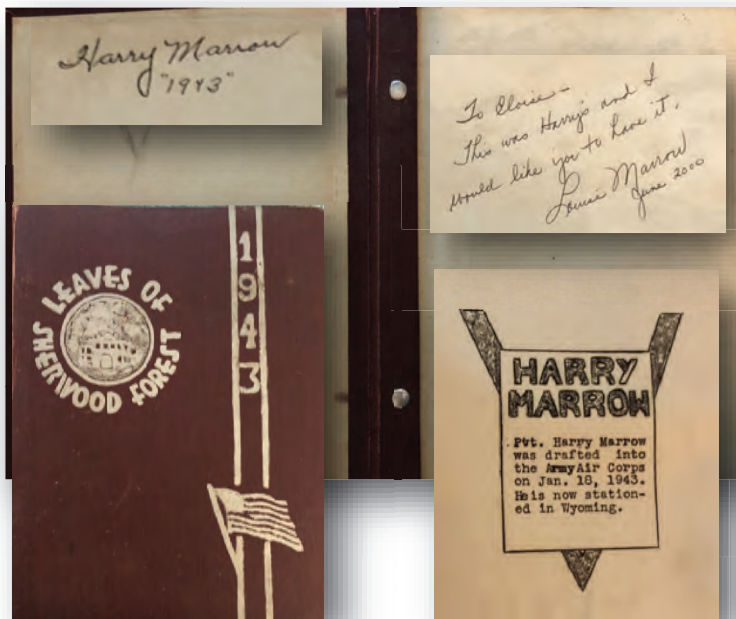 Harry Marrow
"1943"
To Eloise -
This was Harry's and I
would like you to have it.
Louise Marrow
June 2000
LEAVES OF
SHERWOOD FOREST
1943
HARRY
MARROW
Pvt. Harry Marrow
was drafted into
the Army Air Corps
on Jan. 18, 1943.
He is now station-
ed in Wyoming.